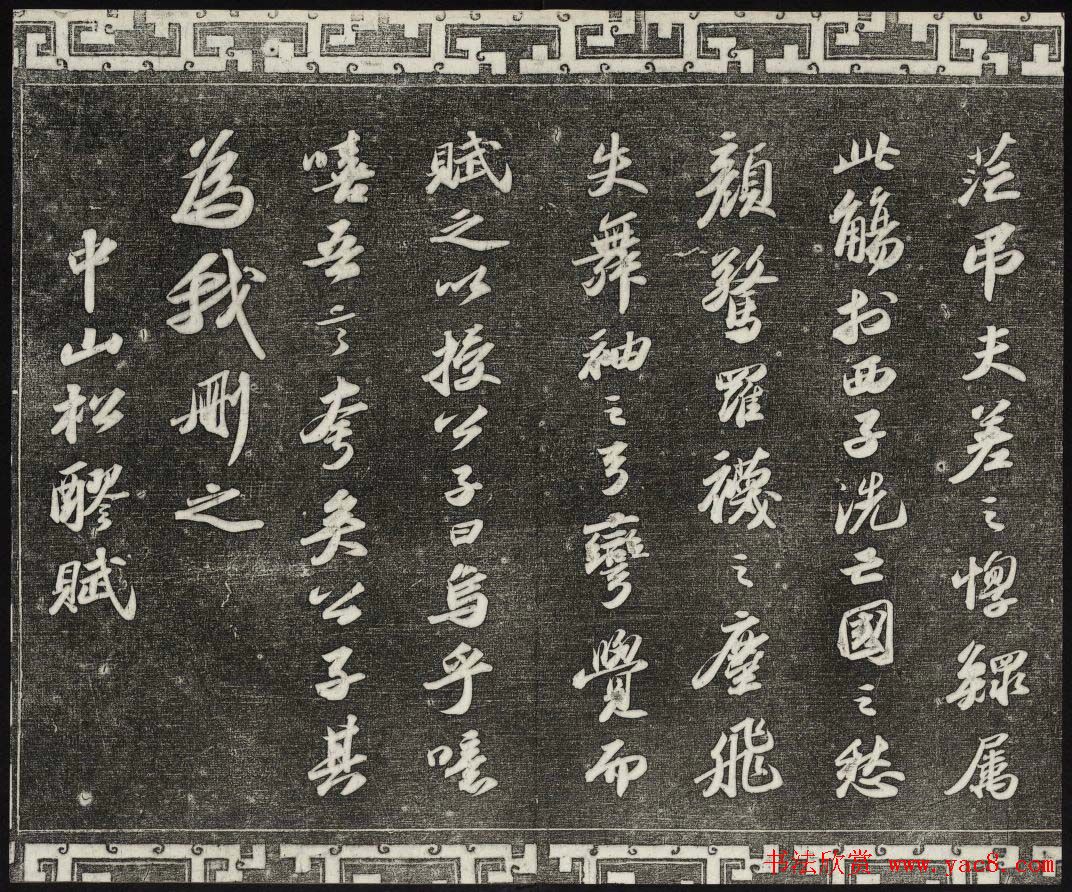 茫吊夫差之惸鰥属
此觴於西子洗亡國之愁
顏驚羅襪之塵飛
失舞袖之弓彎覺而
賦之以授公子曰烏乎噫
嘻吾言夸矣公子其
為我刪之
中山松醪賦
书法欣赏 www.yac8.com